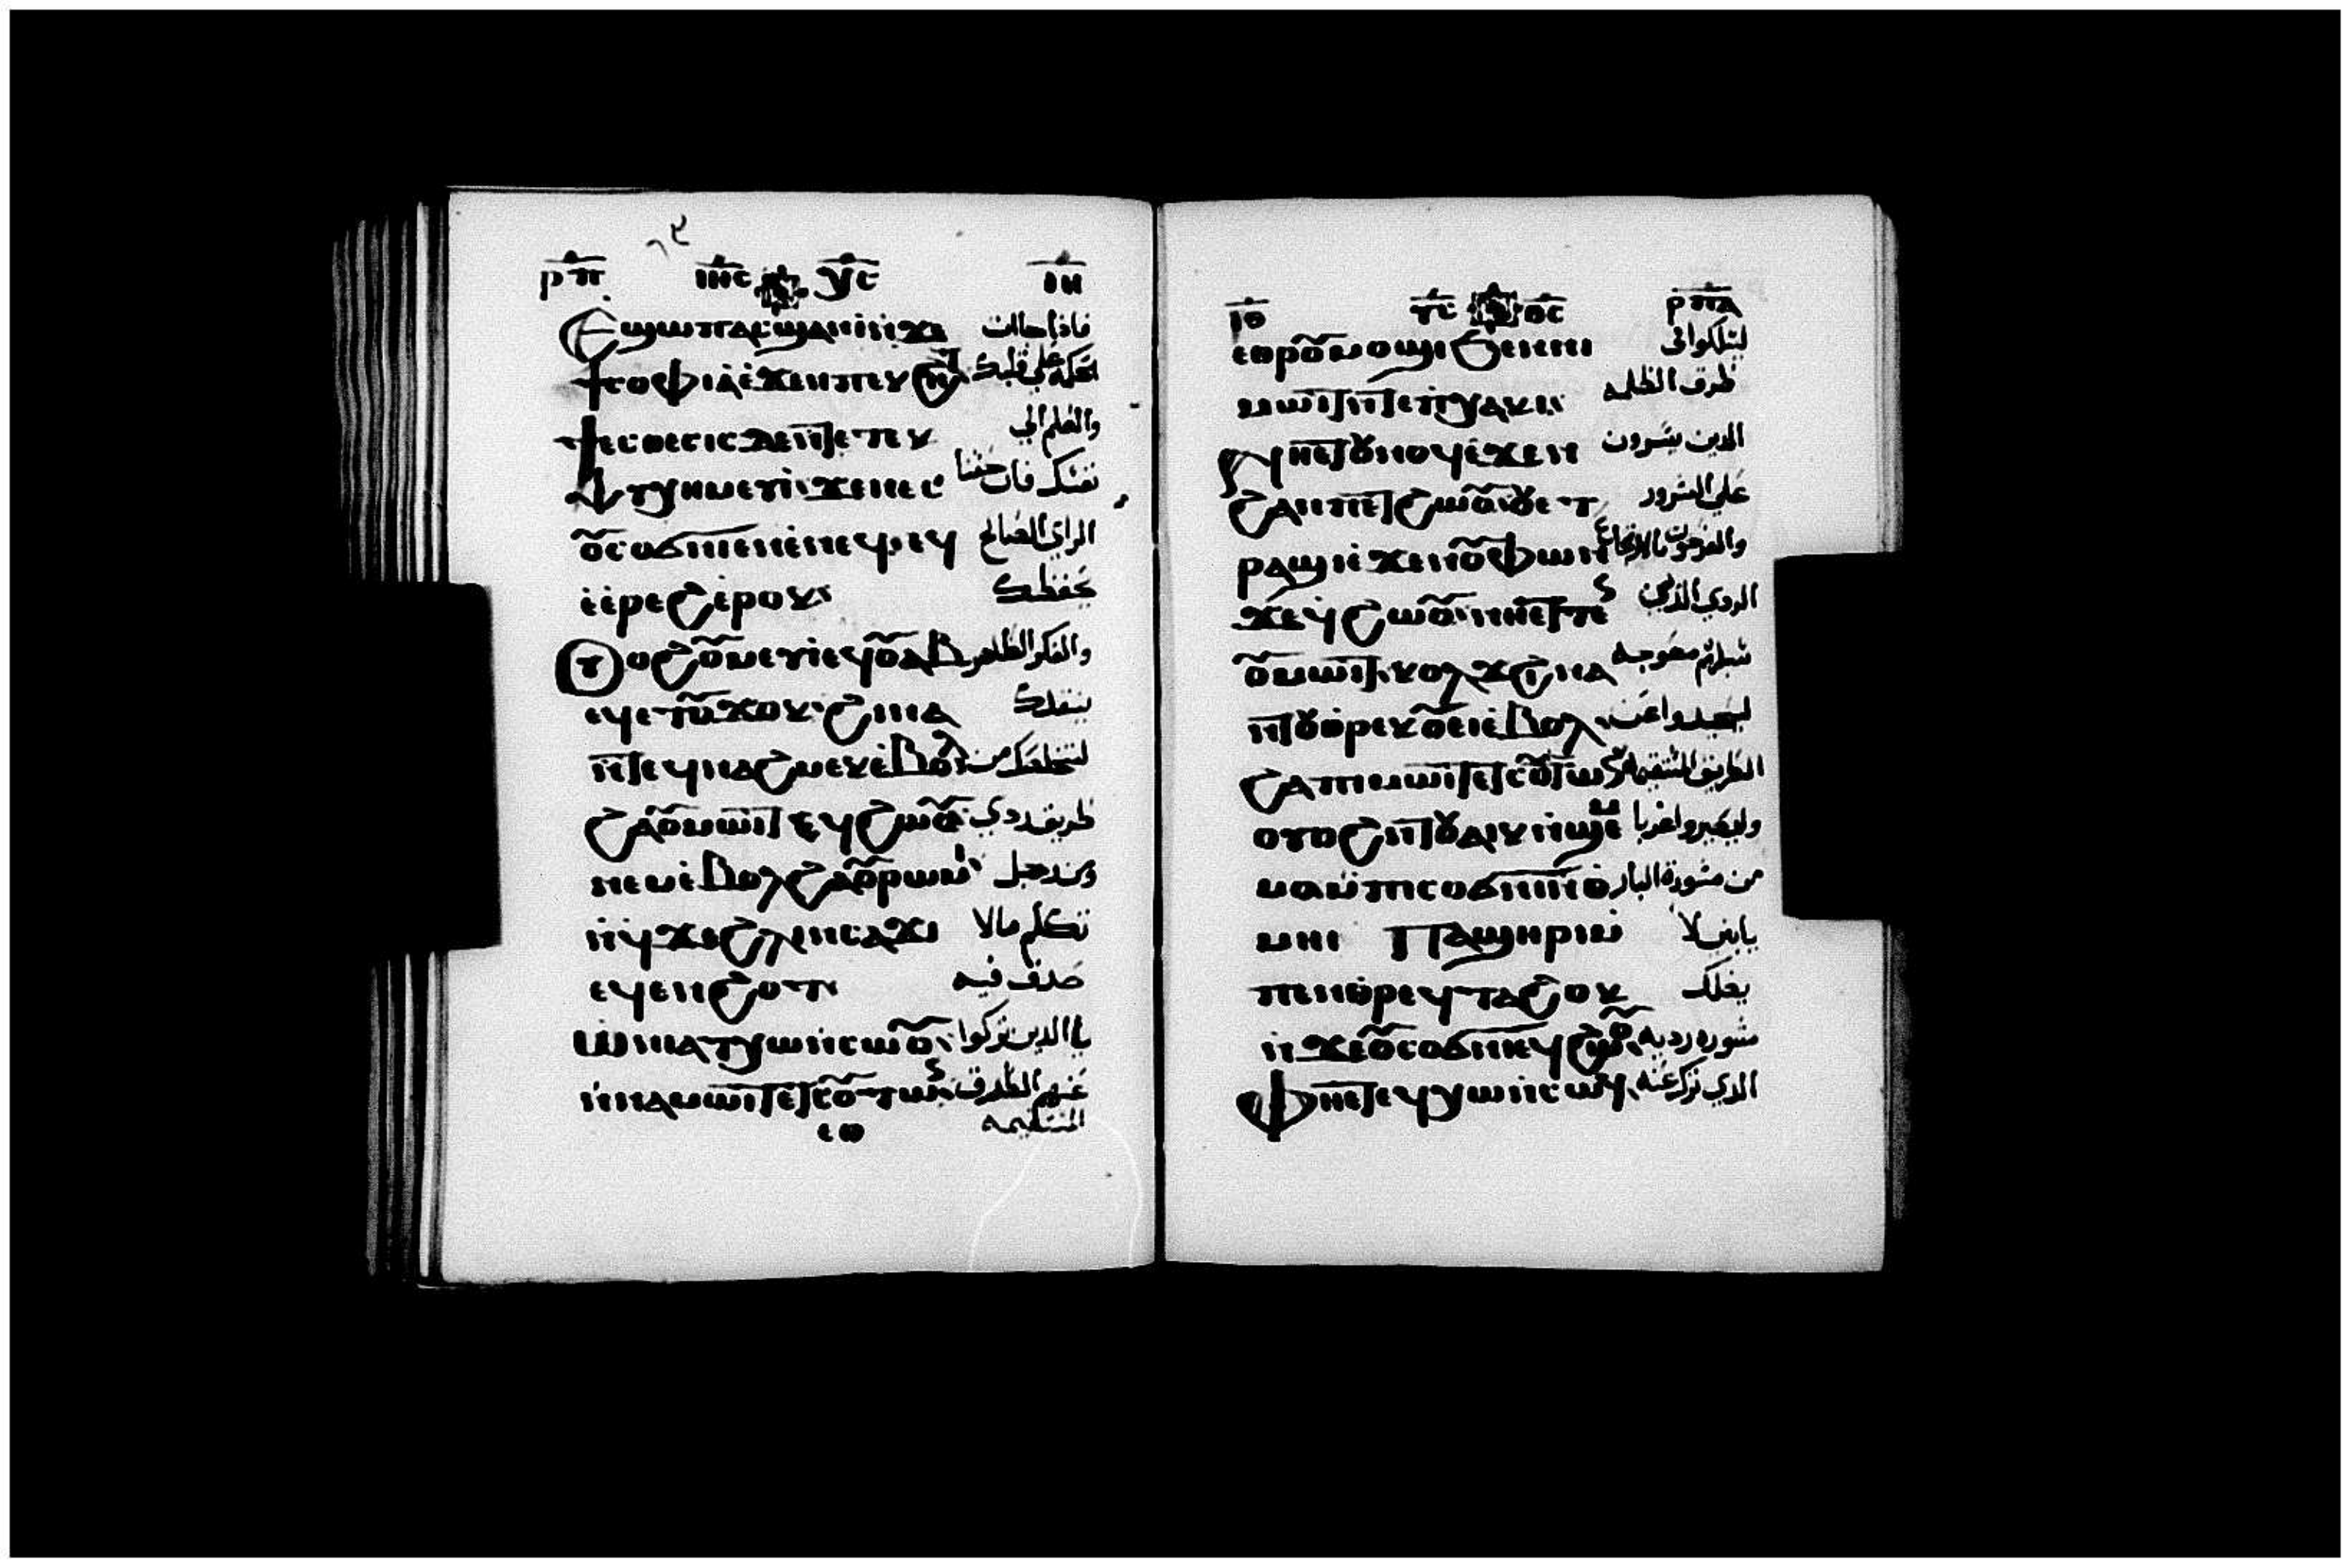 ⲣⲡ ⲓⲏⲥ ⲭⲥ ⲓⲏ
Ⲉϣⲱⲡ ⲁⲥϣⲁⲛⲓ ⲛϫⲉ فاذا جاات
ϯⲥⲟⲫⲓⲁ ⲉϫⲉⲛ ⲡⲉⲕϩⲏⲧ الحكمة علي قلبك
ϯⲉⲥⲑⲉⲥⲓⲥ ⲇⲉ ⲛⲧⲉ ⲧⲉⲕ والفهم الي
ⲯⲩⲭⲏ ⲙⲉⲩⲓ ϫⲉ ⲛⲉⲥ نفسك فان حسنا
ⲟⲩⲥⲟϭⲛⲓ ⲉⲛⲉⲛⲉϥ ⲉϥ الراي الصالح
ⲉⲉⲣⲉϩ ⲉⲣⲟⲕ يحفظك
Ⲟⲩⲟϩ ⲟⲩⲙⲉⲩⲓ ⲉϥⲟⲩⲁⲃ والفكر الطاهر
ⲉϥⲉⲧⲟⲩϫⲟⲕ ϩⲓⲛⲁ ينقذك
ⲛⲧⲉϥⲛⲁϩⲙⲉⲕ ⲉⲃⲟⲗ لتخلصك من
ϩⲁ ⲟⲩⲙⲱⲓⲧ ⲉϥϩⲱⲟⲩ طريق ردي
ⲛⲉⲙ ⲉⲃⲟⲗ ϩⲁ ⲟⲩⲣⲱⲙⲓ ومن رجل
ⲛϥϫⲉ ϩⲗⲓ ⲛⲥⲁϫⲓ تكلم مالا
ⲉϥⲉⲛϩⲟⲧ صدق فيه
Ⲱ ⲛⲁⲧⲭⲱ ⲛⲥⲱⲟⲩ يا الذين تركوا
ⲛⲛⲁⲙⲱⲓⲧ ⲉⲧⲥⲟⲩⲧⲱⲛ عنهم الطرق
ⲉⲑ المستقيمه
ⲓⲑ ⲩⲥ ⲑⲥ ⲣⲡⲁ
ⲉⲑⲣⲟⲩⲙⲟϣⲓ ϧⲉⲛ ⲛⲓ ليسلكوا في
ⲙⲱⲓⲧ ⲛⲧⲉ ⲡⲭⲁⲕⲓ طرق الظلمه
Ⲛⲏ ⲉⲧⲟⲩⲛⲟϥ ⲉϫⲉⲛ الذين يسرون
ϩⲁⲛⲡⲉⲧϩⲱⲟⲩ ⲟⲩⲉⲧ علي الشرور
ⲣⲁϣⲓ ⲉϫⲉⲛ ⲟⲩⲫⲱⲛ والفرحون بالانقلاب
ϫⲉϥϩⲱⲟⲩ ⲛⲏ ⲉⲧⲉ الردي الذين
ⲟⲩⲙⲱⲓⲧ ⲕⲟⲗϫ ϩⲓⲛⲁ سبلهم معوجه
ⲛⲧⲟⲩⲑⲣⲉⲕⲟⲩⲉⲓ ⲉⲃⲟⲗ ليبعدوا عن
ϩⲁ ⲡⲓⲙⲱⲓⲧ ⲉⲧⲥⲟⲩⲧⲱⲛ الطريق المستقيمه
ⲟⲩⲟϩ ⲛⲧⲟⲩⲁⲓⲕ ⲛϣⲉⲙ وليصيروا غربا
ⲙⲟ ⲙⲡⲓⲥⲟϭⲛⲓ ⲛ من مشورة البار
ⲙⲏⲓ Ⲡⲁϣⲏⲣⲓ ⲙ يا بني لا
ⲡⲉⲛⲑⲣⲉϥⲧⲁϩⲟⲕ يضلك
ⲛϫⲉ ⲟⲩⲥⲟϭⲛⲓ ⲉϥϩⲱⲟⲩ مشوره رديه
Ⲫⲏ ⲉⲧⲉϥⲭⲱ ⲛⲥⲱϥ الذي ترك عنه